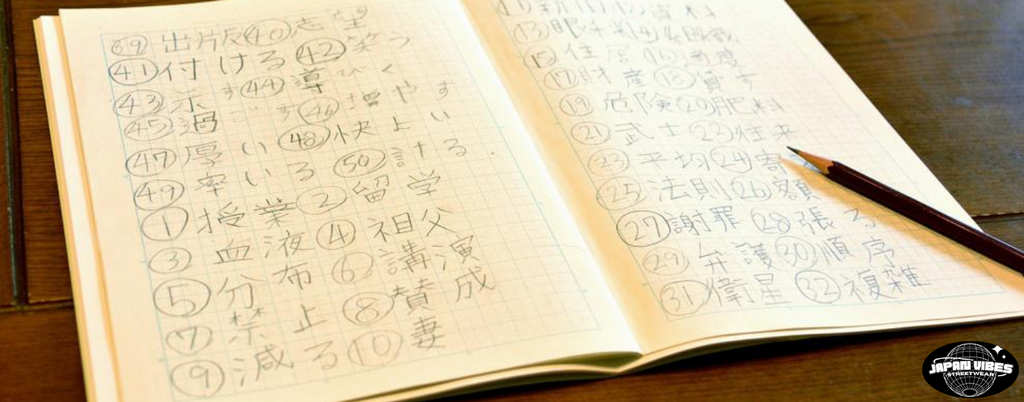 ㊴出版㊵志望
㊶付ける㊷笑う
㊸示す㊹導びく
㊺過ごす㊻増やす
㊼厚い㊽快よい
㊾率いる㊿計る.
①授業②留学
③血液④祖父
⑤分布⑥講演
⑦禁止⑧賛成
⑨減る⑩妻
⑬眼科⑭
⑮住居⑯
⑰財産⑱貸す
⑲危険⑳肥料
㉑武士㉒往来
㉓平均㉔寄
㉕法則㉖額
㉗謝罪㉘張る
㉙弁護㉚順序
㉛衛星㉜複雑
JAPAN VIBES
STREETWEAR